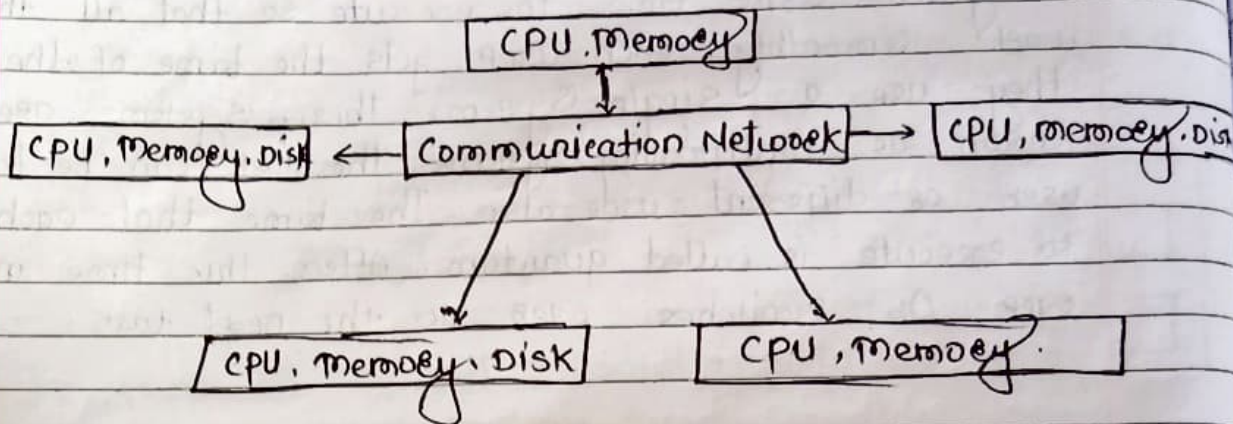 CPU, Memory
CPU, Memory, Disk
Communication Network
CPU, Memory, Dis
CPU, Memory, Disk
CPU, Memory.